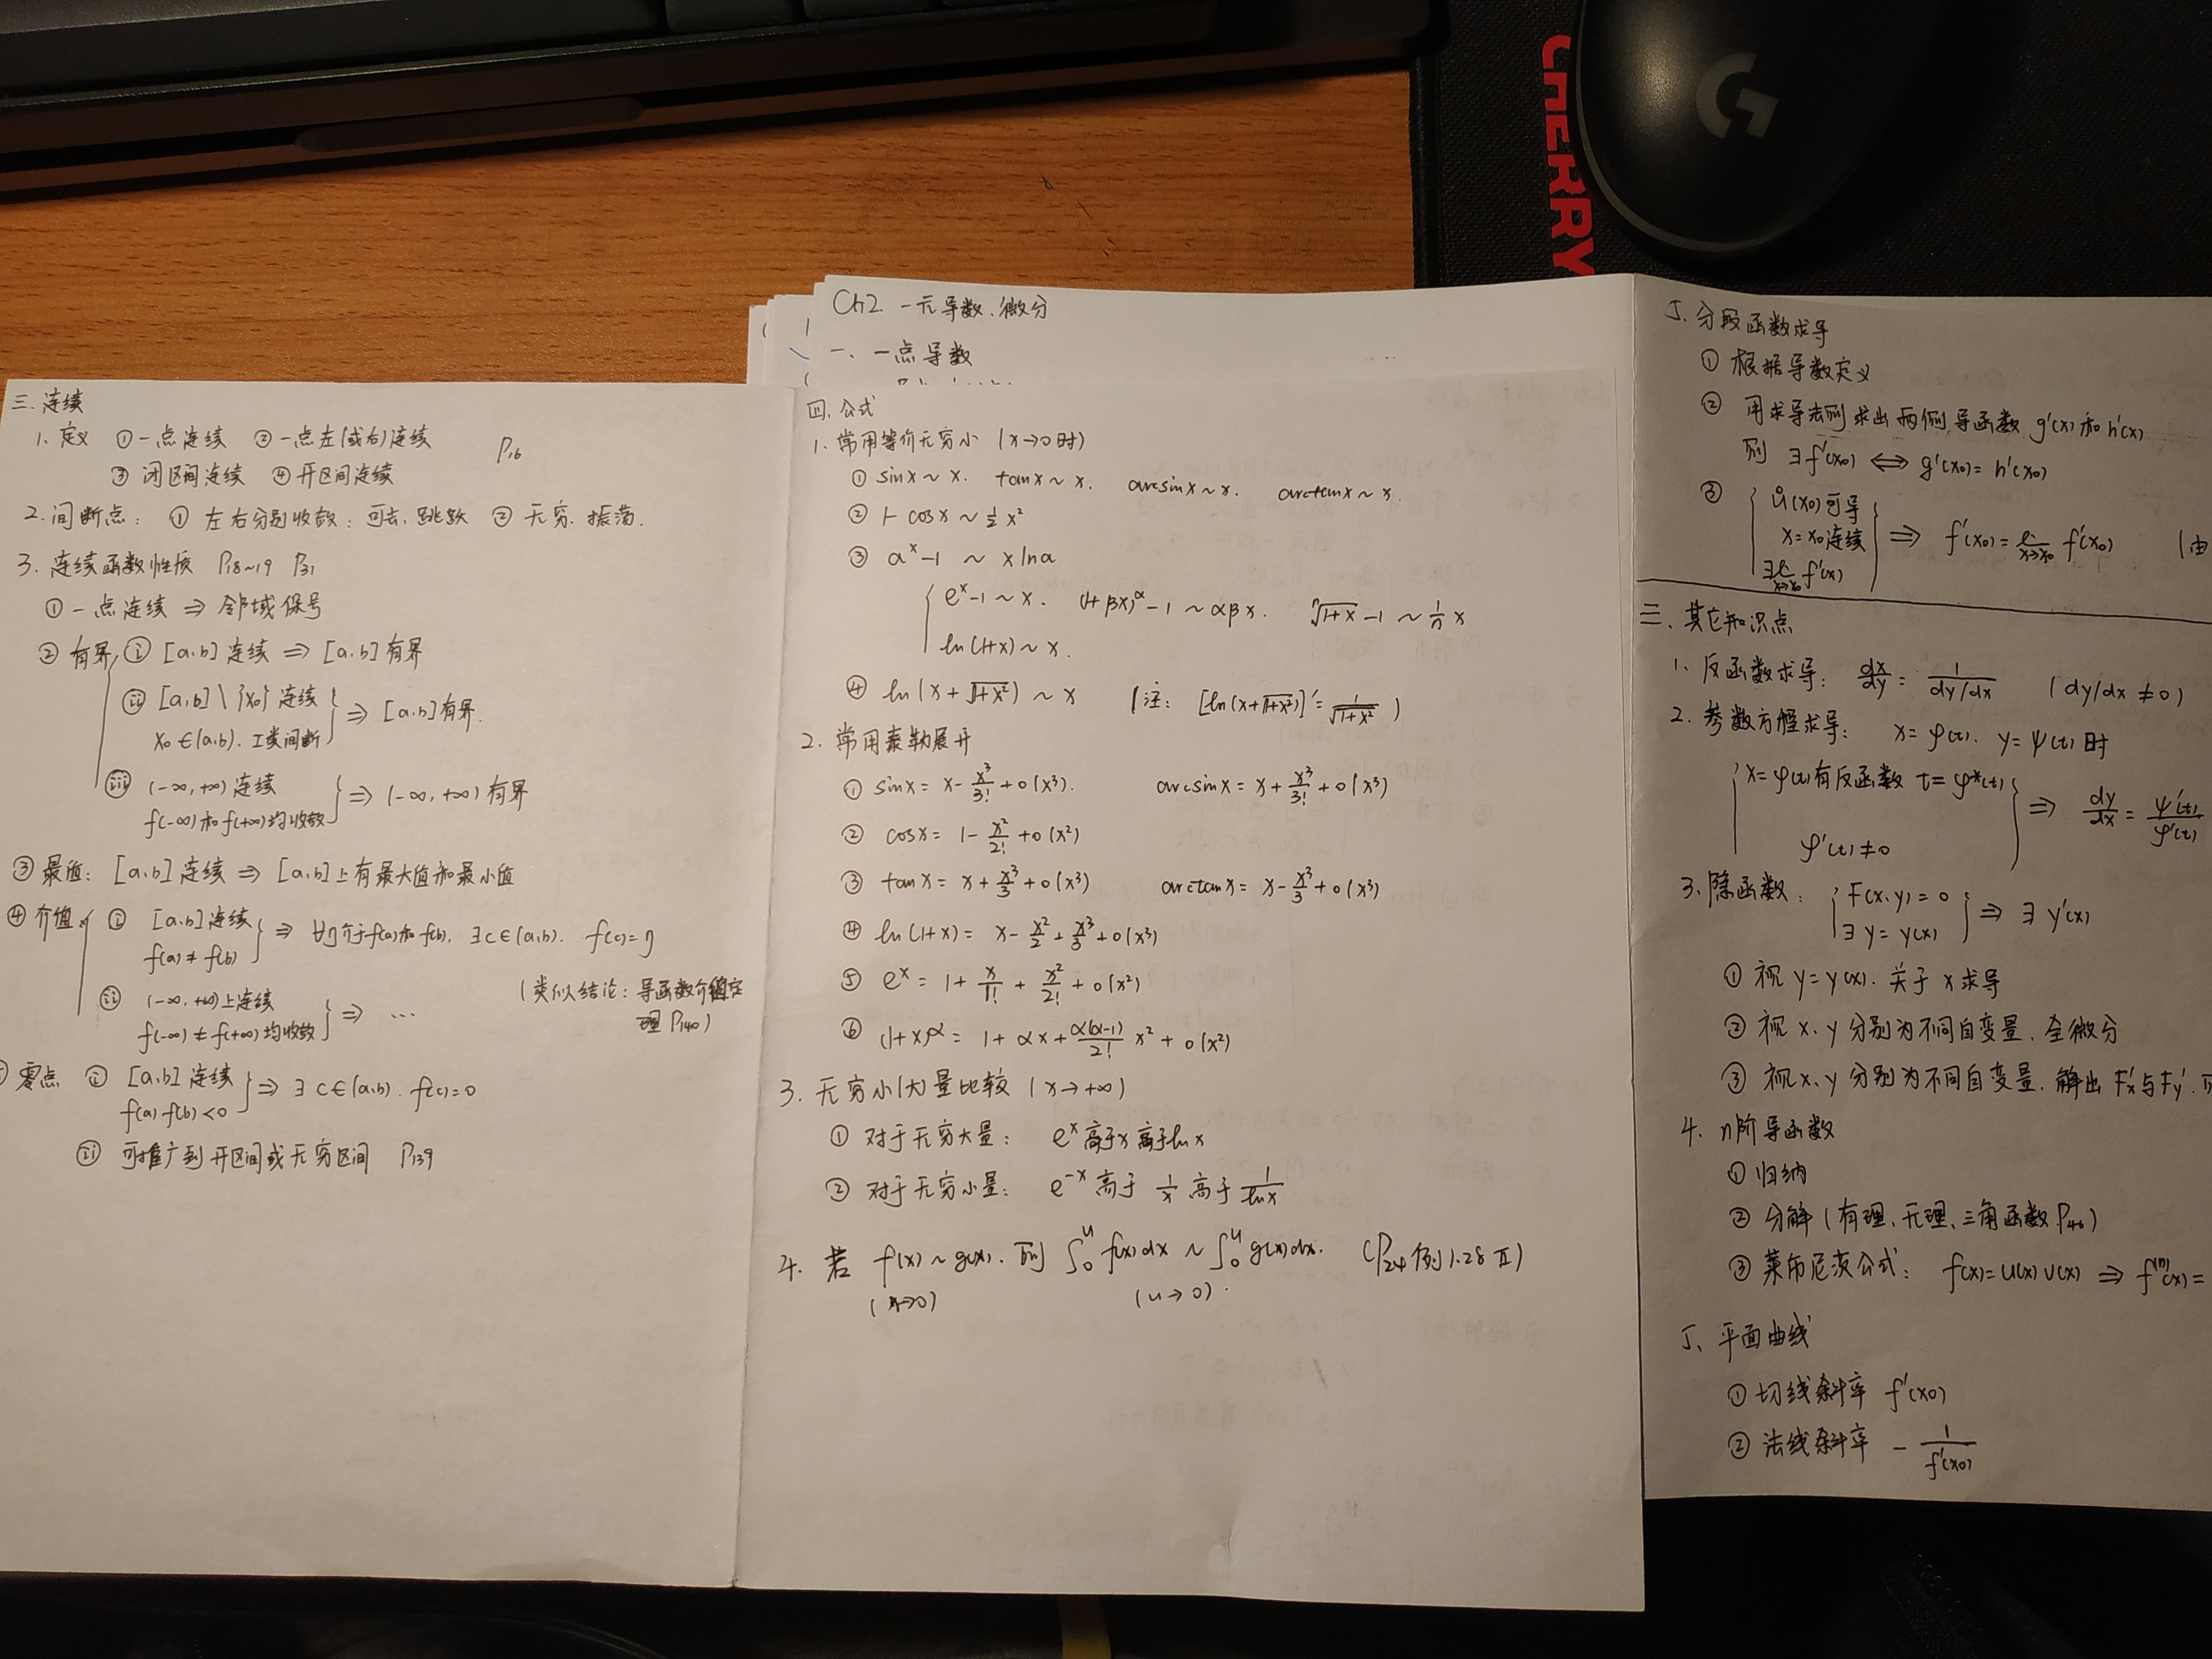 CHERRY
G
Ch2. 一元导数、微分
一、一点导数
三. 连续
1. 定义 ① 一点连续 ② 一点左(或右)连续 P16
③ 闭区间连续 ④ 开区间连续
2. 间断点: ① 左右分别收敛: 可去、跳跃 ② 无穷、振荡.
3. 连续函数性质 P18~19 P31
① 一点连续 ⇒ 邻域保号
② 有界 ⅰ [a,b] 连续 ⇒ [a,b] 有界
ⅱ [a,b] \ {x₀} 连续
x₀∈(a,b). I类间断 } ⇒ [a,b] 有界.
ⅲ (-∞,+∞) 连续
f(-∞)和f(+∞)均收敛 } ⇒ (-∞,+∞) 有界
③ 最值: [a,b] 连续 ⇒ [a,b] 上有最大值和最小值
④ 介值 ⅰ [a,b] 连续
f(a)≠f(b) } ⇒ ∀η介于f(a)和f(b), ∃c∈(a,b). f(c)=η
ⅱ (-∞,+∞)上连续
f(-∞)≠f(+∞)均收敛 } ⇒ …
(类似结论: 导函数介值定
理 P140)
零点 ⅰ [a,b] 连续
f(a)·f(b)<0 } ⇒ ∃ c∈(a,b). f(c)=0
ⅱ 可推广到开区间或无穷区间 P139
四. 公式
1. 常用等价无穷小 (x→0时)
① sinx~x. tanx~x. arcsinx~x. arctanx~x.
② 1-cosx~½x²
③ aˣ-1 ~ xlna
{ eˣ-1~x. (1+βx)^α-1~αβx. ⁿ√(1+x)-1~(1/n)x
ln(1+x)~x.
④ ln(x+√(1+x²)) ~ x (注: [ln(x+√(1+x²))]'=1/√(1+x²))
2. 常用泰勒展开
① sinx= x-x³/3!+o(x³). arcsinx= x+x³/3!+o(x³)
② cosx= 1-x²/2!+o(x²)
③ tanx= x+x³/3+o(x³) arctanx= x-x³/3+o(x³)
④ ln(1+x)= x-x²/2+x³/3+o(x³)
⑤ eˣ= 1+x/1!+x²/2!+o(x²)
⑥ (1+x)^α= 1+αx+α(α-1)/2! x²+o(x²)
3. 无穷小(大)量比较 (x→+∞)
① 对于无穷大量: eˣ高于x高于lnx
② 对于无穷小量: e⁻ˣ高于 1/x 高于 1/lnx
4. 若 f(x)~g(x). 则 ∫₀ᵘ f(x)dx ~ ∫₀ᵘ g(x)dx. (P24 例1.28 Ⅱ)
(x→0) (u→0).
5. 分段函数求导
① 根据导数定义
② 用求导法则求出两侧导函数 g'(x)和h'(x)
则 ∃f'(x₀) ⇔ g'(x₀)=h'(x₀)
③ { Ů(x₀)可导
x=x₀连续
∃ lim x→x₀ f'(x) } ⇒ f'(x₀)= lim x→x₀ f'(x₀) (由
三. 其它知识点
1. 反函数求导: dx/dy = 1/(dy/dx) (dy/dx≠0)
2. 参数方程求导: x=φ(t). y=ψ(t)时
{ x=φ(t)有反函数 t=φ*(t)
φ'(t)≠0 } ⇒ dy/dx = ψ'(t)/φ'(t)
3. 隐函数: { F(x,y)=0
∃ y=y(x) } ⇒ ∃ y'(x)
① 视 y=y(x). 关于 x 求导
② 视 x、y 分别为不同自变量. 全微分
③ 视 x、y 分别为不同自变量. 解出 F'x与F'y.
4. n阶导函数
① 归纳
② 分解 (有理、无理、三角函数 P46)
③ 莱布尼茨公式: f(x)=u(x)v(x) ⇒ f⁽ⁿ⁾(x)=
5、平面曲线
① 切线斜率 f'(x₀)
② 法线斜率 - 1/f'(x₀)